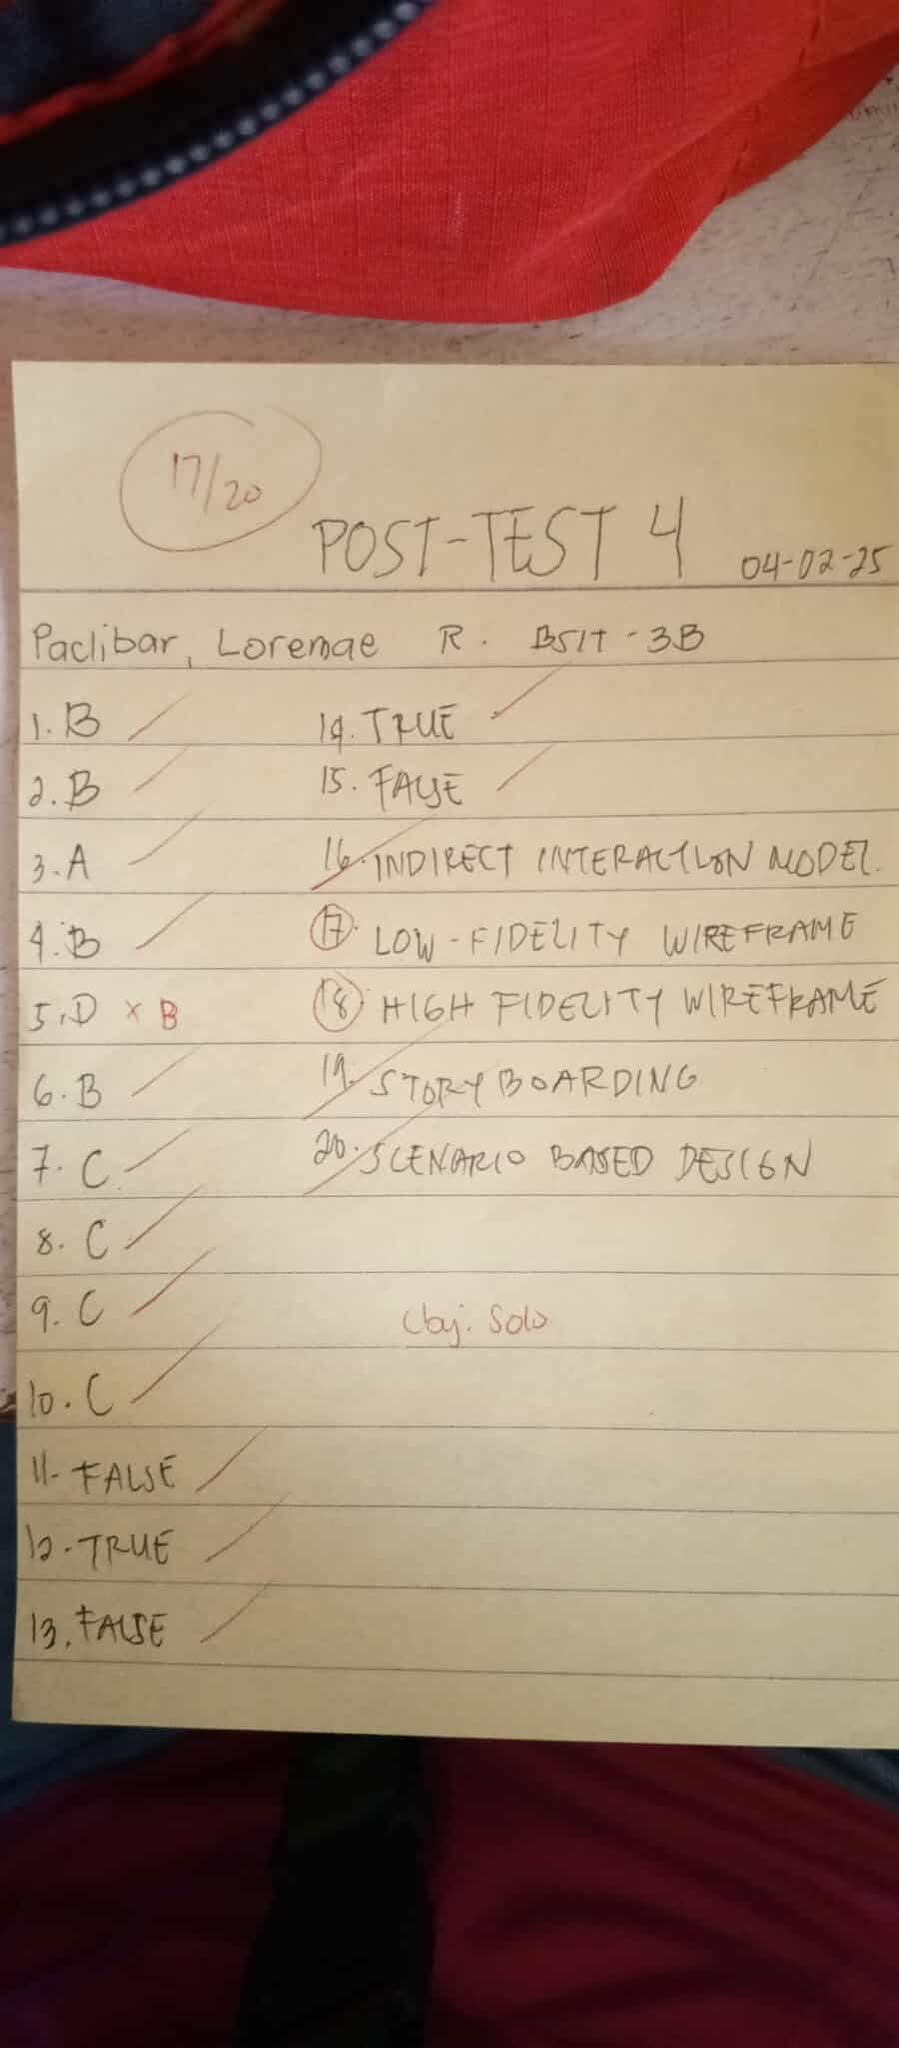 17/20
POST-TEST 4 04-02-25
Paclibar, Loremae R. BSIT-3B
1. B
2. B
3. A
4. B
5. D x B
6. B
7. C
8. C
9. C
10. C
11. FALSE
12. TRUE
13. FALSE
14. TRUE
15. FALSE
16. INDIRECT INTERACTION MODEL.
17. LOW-FIDELITY WIREFRAME
18. HIGH FIDELITY WIREFRAME
19. STORYBOARDING
20. SCENARIO BASED DESIGN
Solo